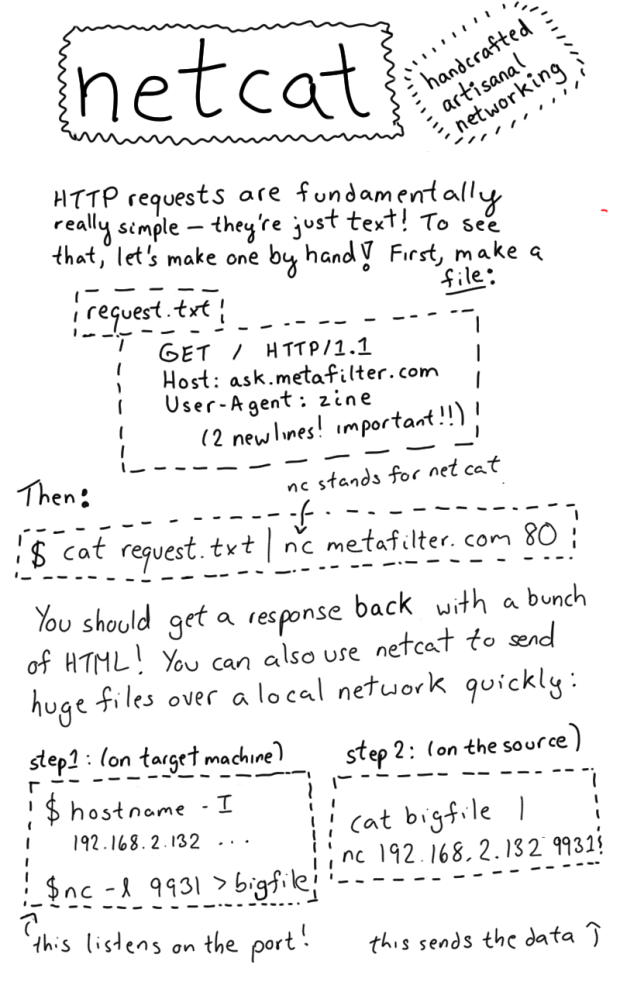 netcat
handcrafted
artisanal
networking
HTTP requests are fundamentally
really simple — they're just text! To see
that, let's make one by hand! First, make a
file:
request.txt
GET / HTTP/1.1
Host: ask.metafilter.com
User-Agent: zine
(2 newlines! important!!)
Then:
nc stands for netcat
$ cat request.txt | nc metafilter.com 80
You should get a response back with a bunch
of HTML! You can also use netcat to send
huge files over a local network quickly:
step1: (on target machine)
$ hostname -I
192.168.2.132 ...
$nc -l 9931 > bigfile
this listens on the port!
step 2: (on the source)
cat bigfile |
nc 192.168.2.132 9931
this sends the data